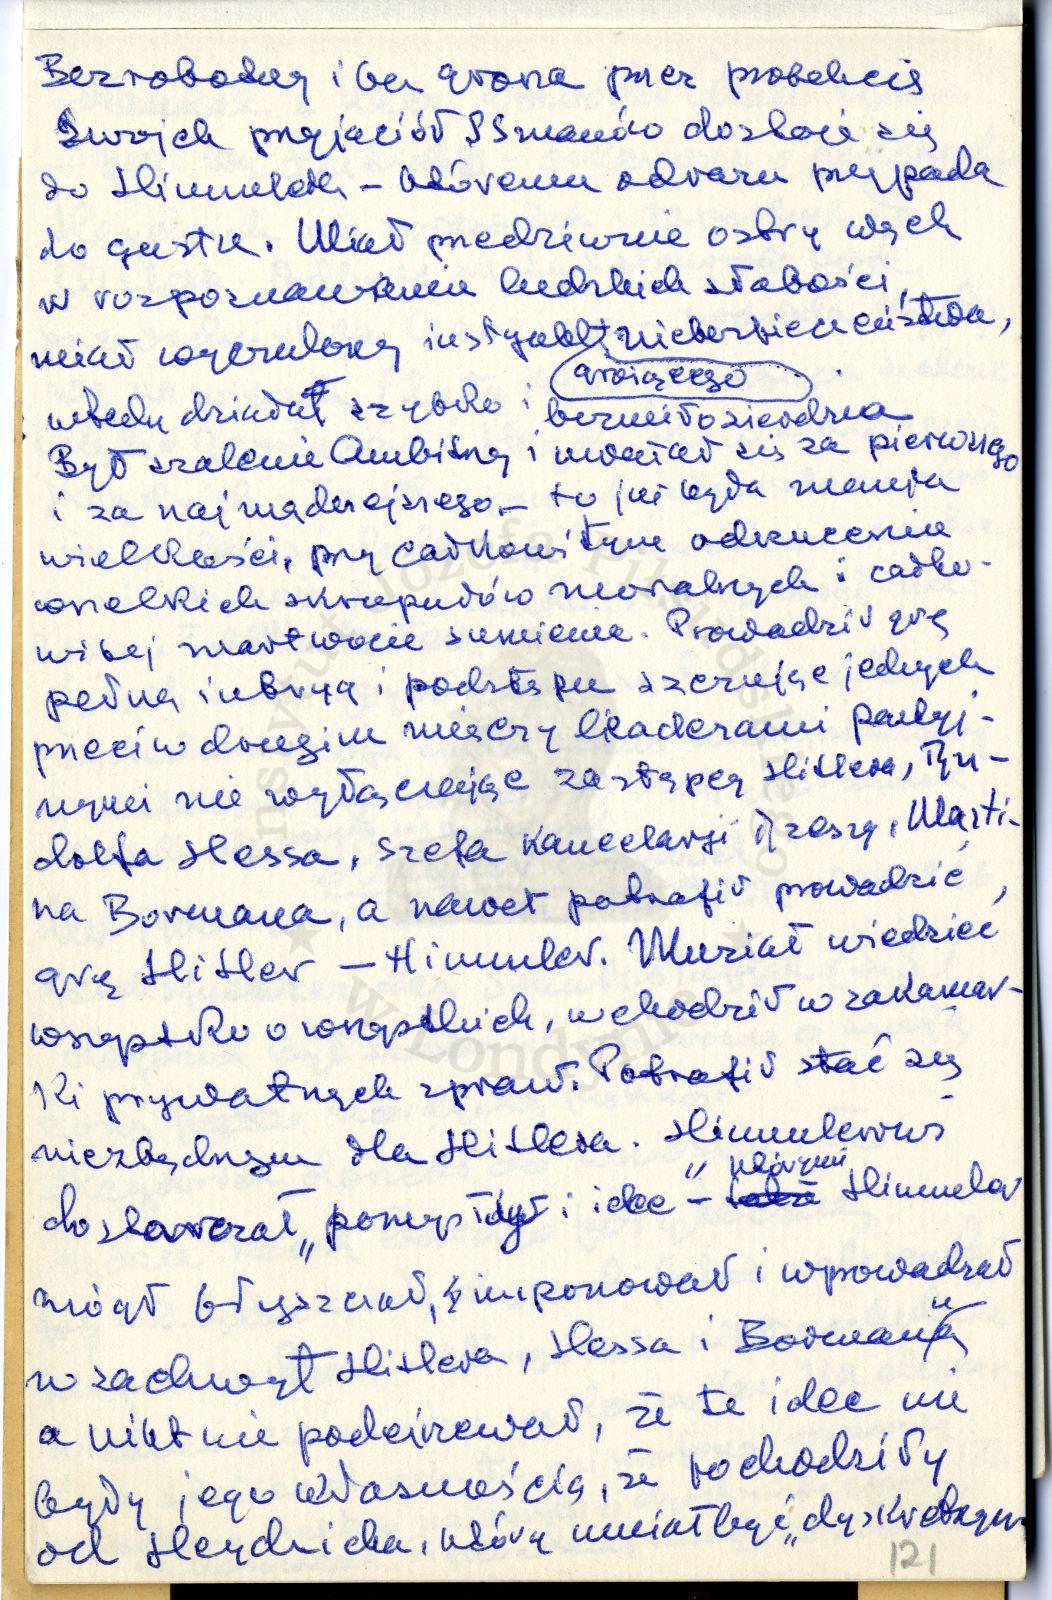 Bezrobotny i bez grosza przez protekcję
swoich przyjaciół SSmanów dostaje się
do Himmlera – któremu odrazu przypada
do gustu. Miał przedziwnie ostry węch
w rozpoznawaniu ludzkich słabości,
miał wyczulony instynkt niebezpieczeństwa,
grożącego
wtedy działał szybko i bezmiłosierdzia
Był szalenie ambitny i uważał się za pierwszego
i za najmądrzejszego – to już była mania
wielkości, przy całkowitym odrzuceniu
wszelkich skrupułów moralnych i całko-
witej martwocie sumienia. Prowadził grę
pełną intryg i podstępu szczując jednych
przeciw drugim między leaderami partyj-
nymi nie wyłączając zastępcy Hitlera, Ru-
dolfa Hessa, szefa Kancelarji Rzeszy, Marti-
na Bormana, a nawet potrafił prowadzić
grę Hitler – Himmler. Musiał wiedzieć
wszystko o wszystkich, wchodził w zakamar-
ki prywatnych spraw. Potrafił stać się
niezbędnym dla Hitlera. Himmlerowi
którymi
dostarczał „pomysły i idee” – Himmler
mógł błyszczeć, imponować i wprowadzać
w zachwyt Hitlera, Hessa i Bormana
a nikt nie podejrzewał, że te idee nie
były jego własnością, że pochodziły
od Heydricha, który umiał być „dyskretnym
121
Instytut Józefa Piłsudskiego
w Londynie